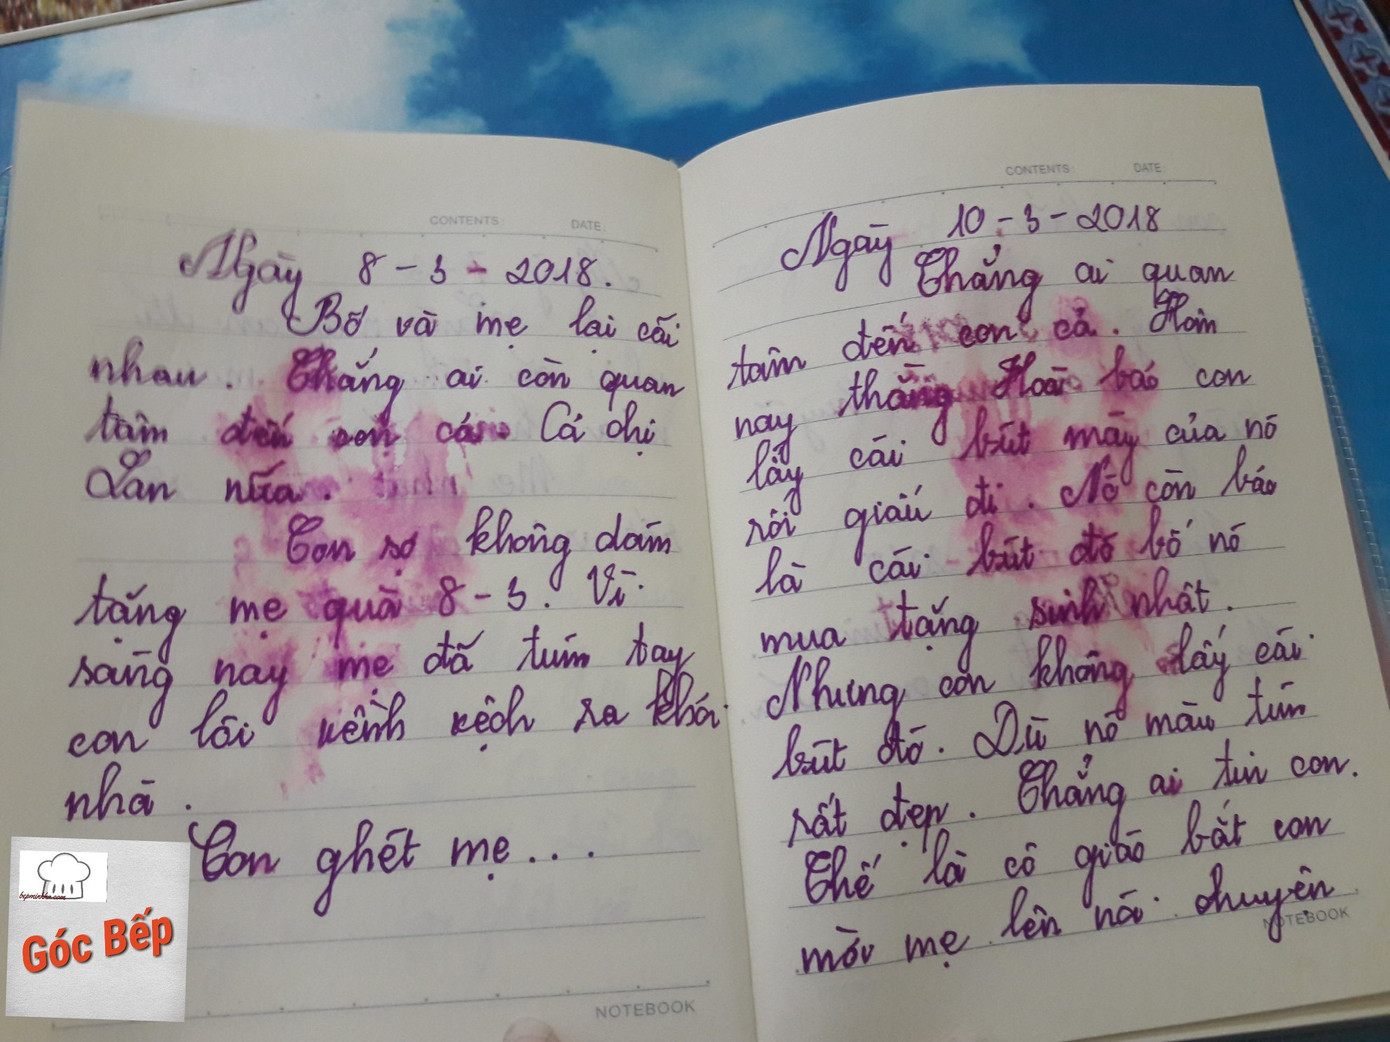 CONTENTS: DATE:
Ngày 8-3-2018.
Bố và mẹ lại cãi
nhau. Chẳng ai còn quan
tâm đến con cả. Cả chị
Lan nữa.
Con sợ không dám
tặng mẹ quà 8-3. Vì
sáng nay mẹ đã túm tay
con lôi xềnh xệch ra khỏi
nhà.
Con ghét mẹ...
NOTEBOOK
CONTENTS: DATE:
Ngày 10-3-2018
Chẳng ai quan
tâm đến con cả. Hôm
nay thằng Hoài bảo con
lấy cái bút máy của nó
rồi giấu đi. Nó còn bảo
là cái bút đó bố nó
mua tặng sinh nhật.
Nhưng con không lấy cái
bút đó. Dù nó màu tím
rất đẹp. Chẳng ai tin con.
Thế là cô giáo bắt con
mời mẹ lên nói chuyện
NOTEBOOK
bepminhha.com
Góc Bếp